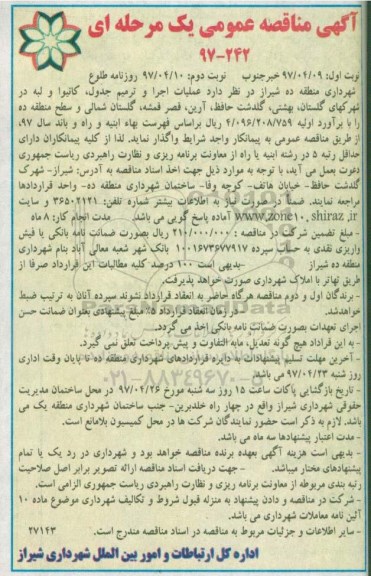 آگهی مناقصه عمومی یک مرحله ای
۹۷-۲۴۲
نوبت اول: ۹۷/۰۴/۰۹ خبرجنوب نوبت دوم: ۹۷/۰۴/۱۰ روزنامه طلوع
شهرداری منطقه ده شیراز در نظر دارد عملیات اجرا و ترمیم جدول، کانیوا و لبه در
شهرکهای گلستان، بهشتی، گلدشت حافظ، آرین، قصر قمشه، گلستان شمالی و سطح منطقه ده
را با برآورد اولیه ۴/۰۹۶/۲۰۸/۷۵۹ ریال براساس فهرست بهاء ابنیه و راه و باند سال ۹۷،
از طریق مناقصه عمومی به پیمانکار واجد شرایط واگذار نماید. لذا از کلیه پیمانکاران دارای
حداقل رتبه ۵ در رشته ابنیه یا راه از معاونت برنامه ریزی و نظارت راهبردی ریاست جمهوری
دعوت بعمل می آید، با توجه به موارد ذیل جهت اخذ اسناد مناقصه به آدرس: شیراز- شهرک
گلدشت حافظ- خیابان هاتف- کوچه وفا- ساختمان شهرداری منطقه ده- واحد قراردادها
مراجعه نمایند. ضمنا در صورت نیاز به اطلاعات بیشتر شماره تلفن: ۳۶۵۰۲۱۲۱ و سایت
www.zone10.shiraz.ir آماده پاسخ گویی می باشد. مدت انجام کار: ۸ ماه
- مبلغ تضمین شرکت در مناقصه: ۲۱۰/۰۰۰/۰۰۰ ریال بصورت ضمانت نامه بانکی یا فیش
واریزی نقدی به حساب سپرده ۱۰۰۱۶۷۳۶۷۷۹۱۷ بانک شهر شعبه معالی آباد بنام شهرداری
منطقه ده شیراز -بدیهی است ۱۰۰ درصد کلیه مطالبات این قرارداد صرفا از
طریق تهاتر با املاک شهرداری صورت خواهد پذیرفت.
- برندگان اول و دوم مناقصه هرگاه حاضر به انعقاد قرارداد نشوند سپرده آنان به ترتیب ضبط
خواهدشد. - در زمان انعقاد قرارداد ۵% مبلغ پیشنهادی بعنوان ضمانت حسن
اجرای تعهدات بصورت ضمانت نامه بانکی اخذ می گردد.
- به این قرارداد هیچ گونه تعدیل، مابه التفاوت و پیش پرداخت تعلق نمی گیرد.
- آخرین مهلت تسلیم پیشنهادات به دایره قراردادهای شهرداری منطقه ده تا پایان وقت اداری
روز شنبه ۹۷/۰۴/۲۳ می باشد.
- تاریخ بازگشایی پاکات ساعت ۱۵ روز سه شنبه مورخ ۹۷/۰۴/۲۶ در محل ساختمان مدیریت
حقوقی شهرداری شیراز واقع در چهار راه خلدبرین- جنب ساختمان شهرداری منطقه یک می
باشد. لازم به ذکر است حضور نمایندگان شرکت ها در محل کمیسیون بلامانع است.
- مدت اعتبار پیشنهادها سه ماه می باشد.
- بدیهی است هزینه آگهی بعهده برنده مناقصه خواهد بود و شهرداری در رد یک یا تمام
پیشنهادهای مختار میباشد. - جهت دریافت اسناد مناقصه ارائه تصویر برابر اصل صلاحیت
رتبه بندی مربوطه از معاونت برنامه ریزی و نظارت راهبردی ریاست جمهوری الزامی است.
- شرکت در مناقصه و دادن پیشنهاد به منزله قبول شروط و تکالیف شهرداری موضوع ماده ۱۰
آئین نامه معاملات شهرداری می باشد.
- سایر اطلاعات و جزئیات مربوط به مناقصه در اسناد مناقصه مندرج است. ۲۷۱۴۳
اداره کل ارتباطات و امور بین الملل شهرداری شیراز
۰۲۱-۸۸۳۴۹۶۷۰-۵